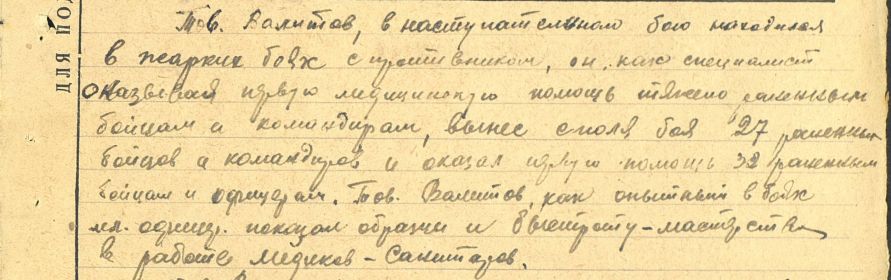 Тов. Валитов, в наступательном бою находился
в жарких боях с противником, он, как специалист
оказывая первую медицинскую помощь тяжело раненным
бойцам и командирам, вынес с поля боя 27 раненных
бойцов и командиров и оказал первую помощь 32 раненным
бойцам и офицерам. Тов. Валитов, как опытный в боях
мл. офицер. показал образцы и быстроту-мастерства
в работе медиков-санитаров.
ДЛЯ ПО